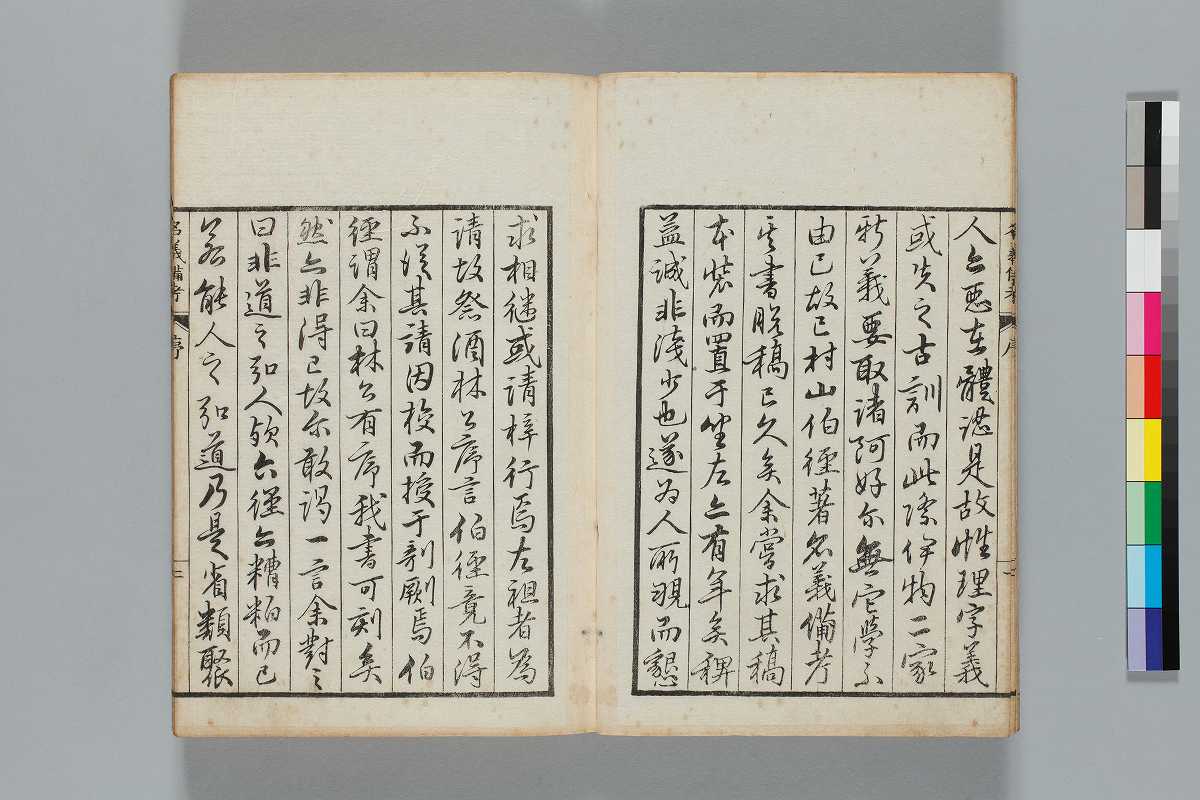 人亦惡在體認是故性理字義
或失之古訓而此際伊物二家
新義要取諸阿好尓無它學不
由已故已村山伯經著名義備考
其書脱稿已久矣余嘗求其稿
本裝而置于坐左亦有年矣稗
益誠非淺少也遂為人所覗而懇
求相繼或請梓行焉左祖者為
請故祭酒林公序言伯經竟不得
不從其請因校而授于剞劂焉伯
經謂余曰林公有序我書可刻矣
然亦非得已故尓敢謁一言余對之
曰非道之弘人欤六經亦糟粕而已
若能人之弘道乃是省類聚
名義備考 序 二